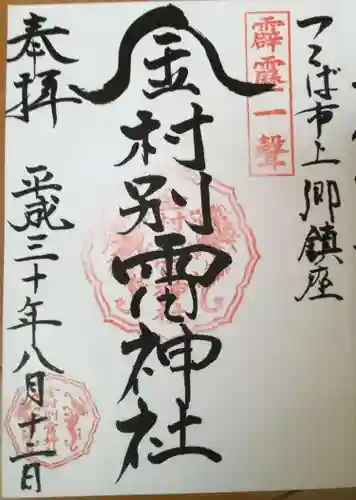 つくば市上郷鎮座
霹靂一聲
金村別雷神社
奉拝
平成三十年八月十二日